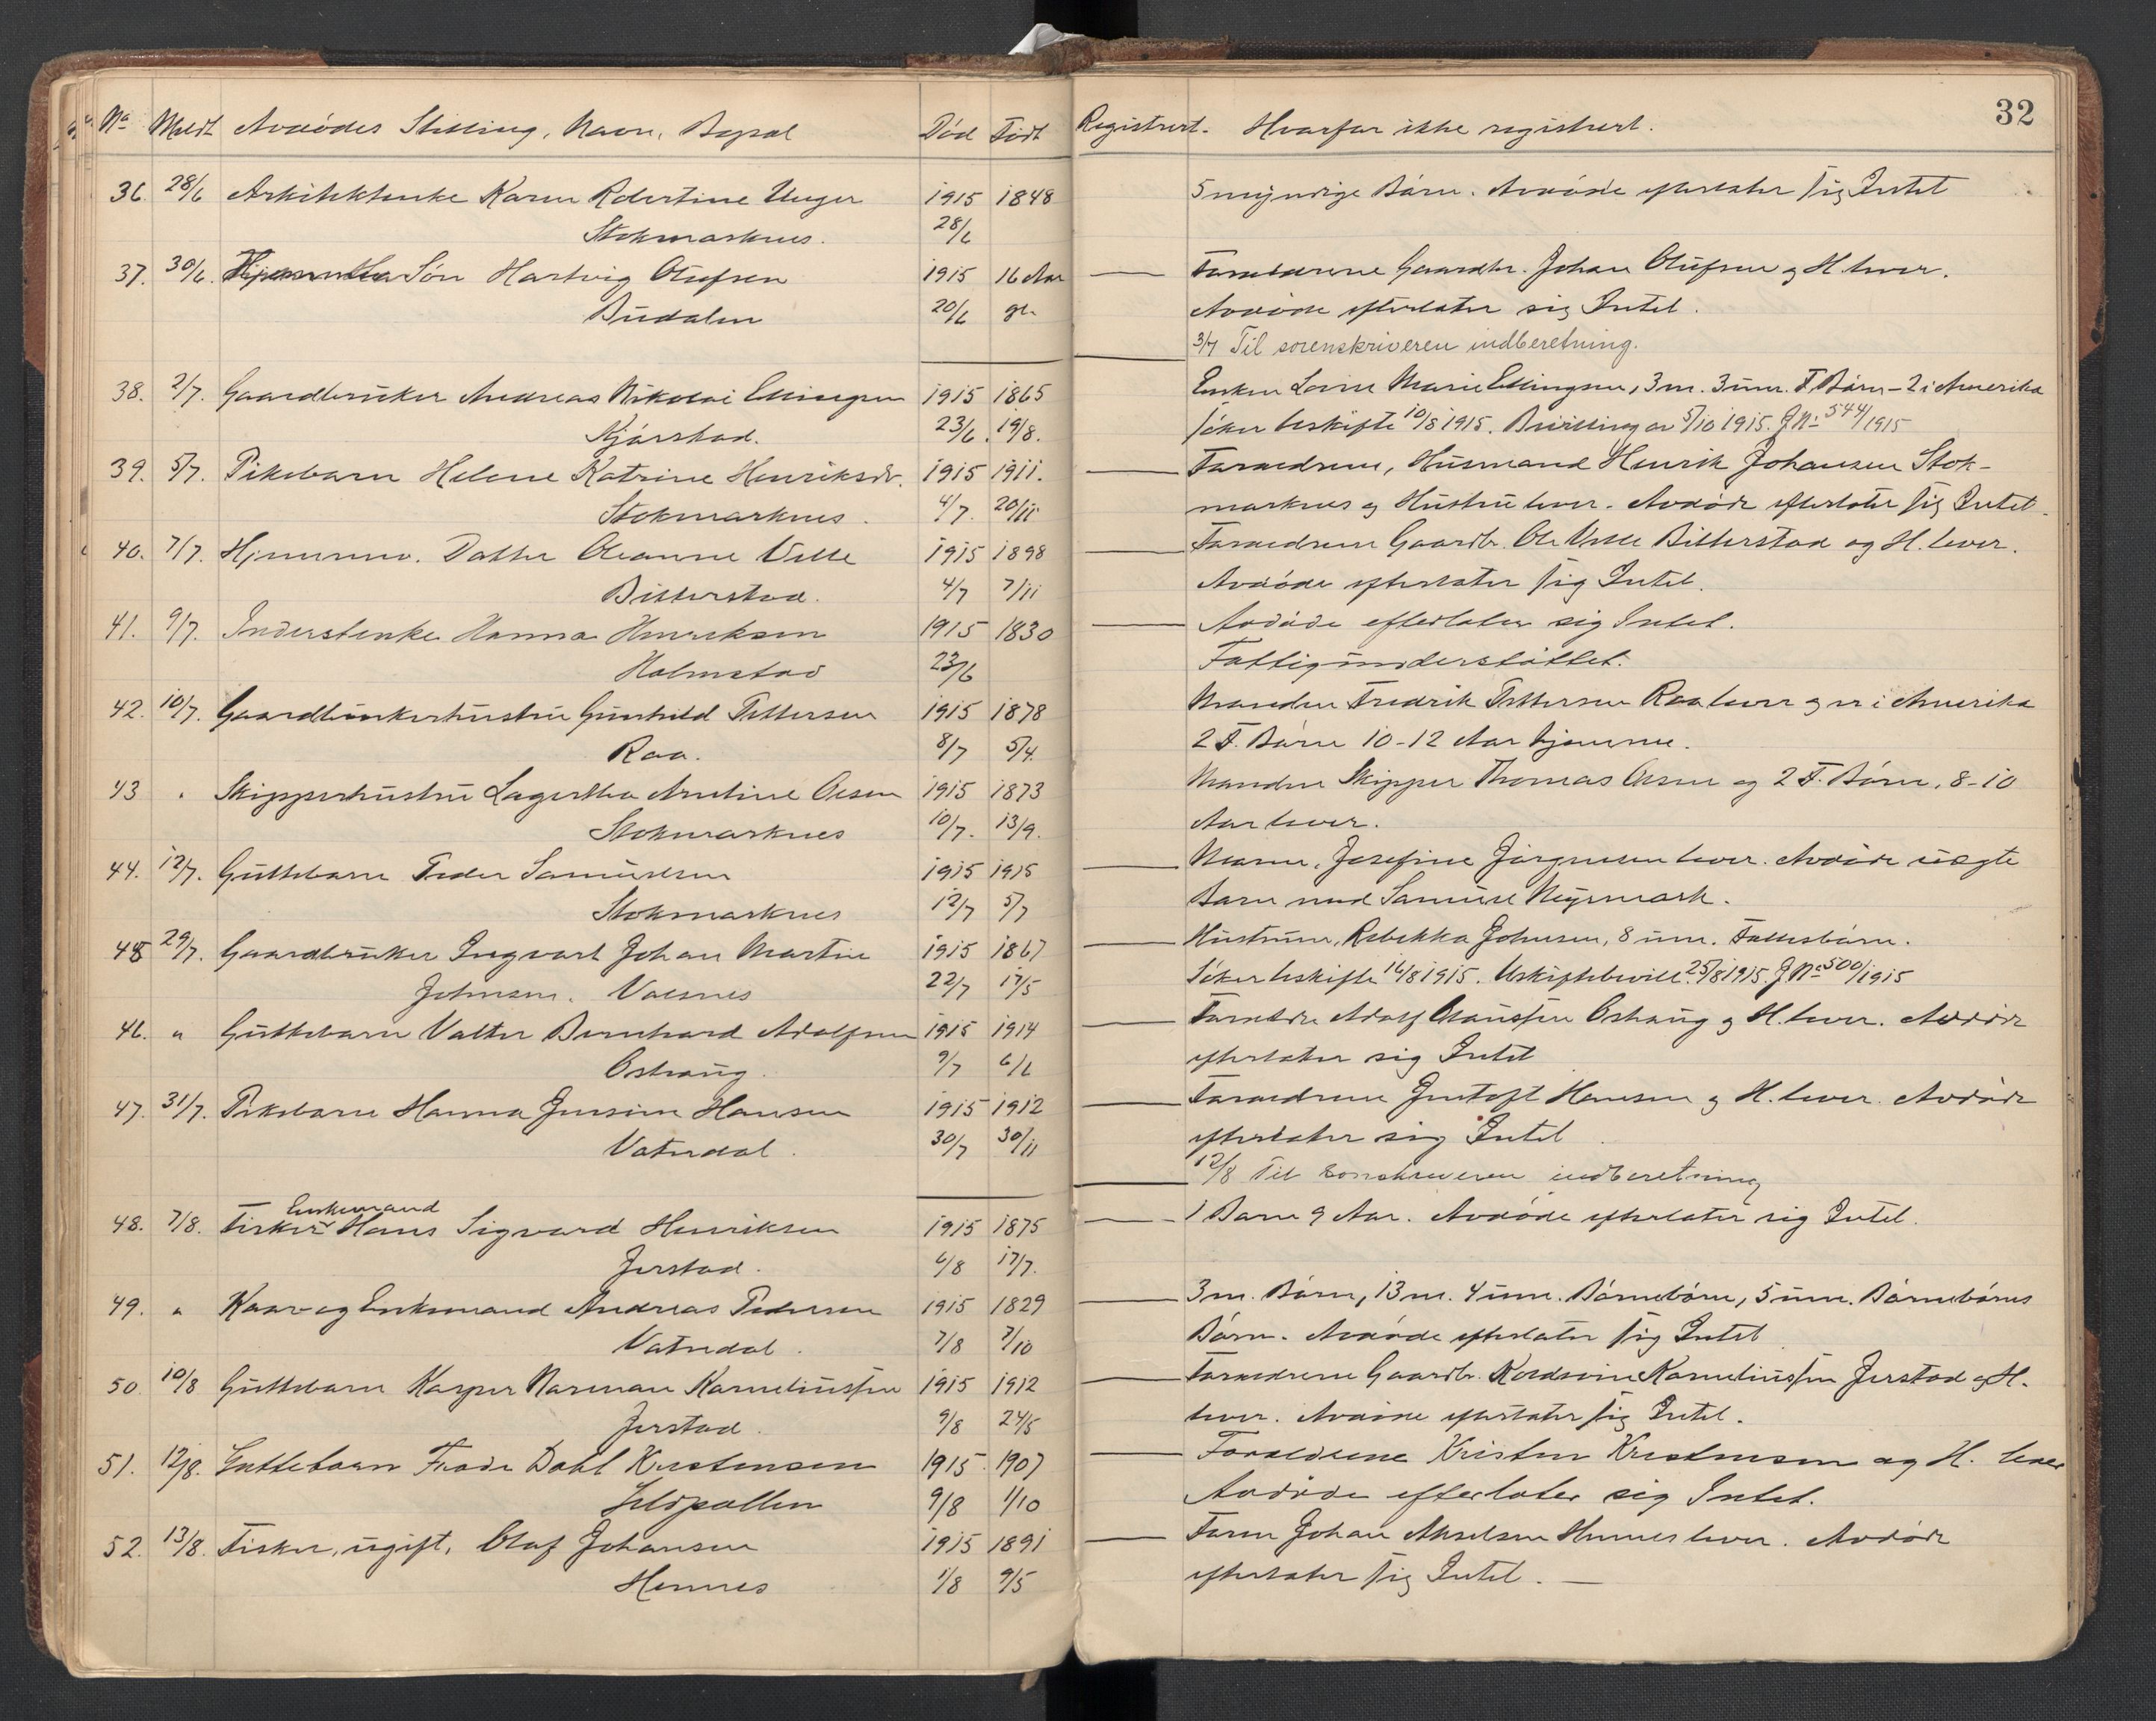 32
No Meldt Avdødes Stilling, Navn, Bopæl Død Født Registrert. Hvorfor ikke registrert.
36. 28/6 Arkitektenke Karen Robertine Unger 1915 1848 5 myndige Børn. Avdøde efterlater sig Intet
Stokmarknes. 28/6
37. 30/6. Søn Hartvig Olufsen 1915 16 Aar — Forældrene Gaardbr. Johan Olufsen og H. lever.
Budalen 20/6 gl. Avdøde efterlater sig Intet.
3/7 Til sorenskriveren indberetning.
38. 2/7. Gaardbruker Andreas Nikolai Ellingsen 1915 1865 Enken Lovise Marie Ellingsen, 3 m. 3 um. F. Børn – 2 i Amerika
Kjørstad. 23/6. 19/8. søker Uskifte 10/8 1915. Bevilling av 5/10 1915. J No 544/1915
39. 5/7. Pikebarn Helene Katrine Henriksdr. 1915 1911. — Forældrene, Husmand Henrik Johansen Stok-
Stokmarknes. 4/7. 20/11 marknes og Hustru lever. Avdøde efterlater sig Intet.
40. 7/7. Hjemmev. Datter Oleanne Valle 1915 1898 — Forældrene Gaardb. Ole Valle Bitterstad og H. lever.
Bitterstad. 4/7 7/11 Avdøde efterlater sig Intet.
41. 9/7. Inderstenke Hanna Henriksen 1915 1830 — Avdøde efterlater sig Intet.
Holmstad 23/6 Fattigunderstøttet.
42. 10/7. Gaardbrukerhustru Gunhild Pettersen 1915 1878 Manden Fredrik Pettersen Raa lever og er i Amerika
Raa. 8/7 5/4. 2 F. Børn 10-12 Aar hjemme.
43 " Skipperhustru Lagertha Arntine Olsen 1915 1873 Manden Skipper Thomas Olsen og 2 F. Børn, 8-10
Stokmarknes 10/7. 13/9. Aar lever.
44. 12/7. Guttebarn Peder Samuelsen 1915 1915 — Moren, Josefine Jørgensen lever. Avdøde uægte
Stokmarknes 12/7 5/7 Barn med Samuel Meyrmark.
45 29/7. Gaardbruker Ingvart Johan Martin 1915 1867 — Hustruen, Rebekka Johnsen, 8 um. Fællesbørn.
Johnsen. Valsnes 22/7 17/5 Søker Uskifte 16/8 1915. Uskiftebevill. 25/8 1915. J No 500/1915
46. " Guttebarn Valter Bernhard Adolfsen 1915 1914 — Forældre Adolf Clausen Oshaug og H. lever. Avdøde
Oshaug. 9/7 6/6 efterlater sig Intet
47. 31/7. Pikebarn Hanna Jensine Hansen 1915 1912 — Forældrene Hansen og H. lever. Avdøde
Vatndal. 30/7 30/11 efterlater sig Intet.
12/8 Til sorenskriveren indberetning
Enkemand
48. 7/8. Fisker Hans Sigvard Henriksen 1915 1875 — 1 Barn 9 Aar. Avdøde efterlater sig Intet.
Jerstad. 6/8 17/7.
49. " Kaar- og Enkemand Andreas Pedersen 1915 1829 — 3 m. Børn, 13 m. 4 um. Børnebørn, 5 um. Børnebørns
Vatndal. 7/8 7/10 Børn. Avdøde efterlater sig Intet
50. 10/8 Guttebarn Kasper Norman Korneliussen 1915 1912 — Forældrene Gaardb. Korneliussen Jerstad og H.
Jerstad. 9/8 24/5 lever. Avdøde efterlater sig Intet.
51. 12/8. Guttebarn Frode Dahl Kristensen 1915 1907 — Foreldrene Kristen Kristensen og H. lever
9/8 1/10 Avdøde efterlater sig Intet.
52. 13/8. Fisker, ugift, Olaf Johansen 1915 1891 — Faren Johan Akselsen Hennes lever. Avdøde
Hennes 1/8 9/5 efterlater sig Intet. —